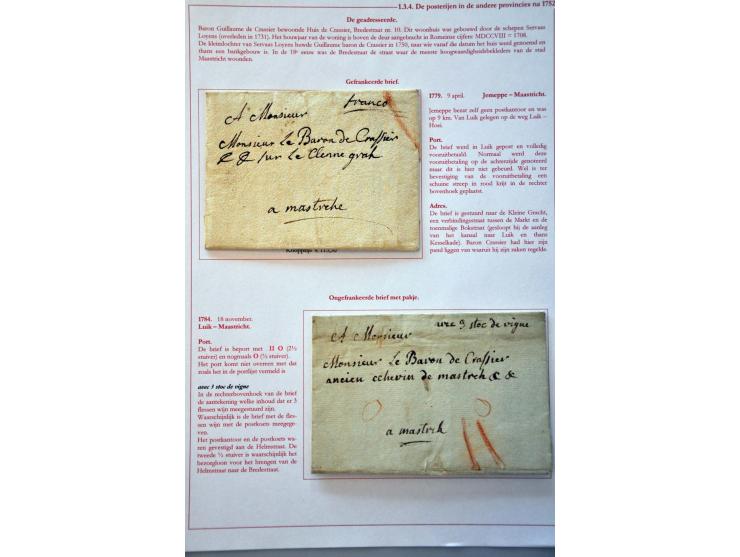 1.3.4. De posterijen in de andere provincies na 1752
De geadresseerde.
Baron Guillaume de Crassier bewoonde Huis de Crassier, Bredestraat nr. 10. Dit woonhuis was gebouwd door de schepen Servaas
Loyens (overleden in 1731). Het bouwjaar van de woning is boven de deur aangebracht in Romeinse cijfers: MDCCVIII = 1708.
De kleindochter van Servaas Loyens huwde Guillaume baron de Crassier in 1750, naar wie vanaf die datum het huis werd genoemd en
thans een bankgebouw is. In de 18e eeuw was de Bredestraat de straat waar de meeste hoogwaardigheidsbekleders van de stad
Maastricht woonden.
Gefrankeerde brief.
franco
A Monsieur
Monsieur Le Baron de Crassier
& & sur Le Clenne grah
a mastrche
1779. 9 april. Jemeppe – Maastricht.
Jemeppe bezat zelf geen postkantoor en was
op 9 km. Van Luik gelegen op de weg Luik –
Hoei.
Port.
De brief werd in Luik gepost en volledig
vooruitbetaald. Normaal werd deze
vooruitbetaling op de achterzijde genoteerd
maar dit is hier niet gebeurd. Wel is ter
bevestiging van de vooruitbetaling een
schuine streep in rood krijt in de rechter
bovenhoek geplaatst.
Adres.
De brief is gestuurd naar de Kleine Gracht,
een verbindingsstraat tussen de Markt en de
toenmalige Bokstraat (gesloopt bij de aanleg
van het kanaal naar Luik en thans
Kesselkade). Baron Crassier had hier zijn
pand liggen van waaruit hij zijn zaken regelde.
Ongefrankeerde brief met pakje.
1784. 18 november.
Luik – Maastricht.
Port.
De brief is beport met II O (2½
stuiver) en nogmaals O (½ stuiver).
Het port komt niet overeen met dat
zoals het in de portlijst vermeld is
avec 3 stoc de vigne
In de rechterbovenhoek van de brief
de aantekening welke inhoud dat er 3
flessen wijn meegestuurd zijn.
Waarschijnlijk is de brief met de fles-
sen wijn met de postkoets meegege-
ven.
Het postkantoor en de postkoets wa-
ren gevestigd aan de Helmstraat. De
tweede ½ stuiver is waarschijnlijk het
bezorgloon voor het brengen van de
Helmstraat naar de Bredestraat.
avec 3 stoc de vigne
A Monsieur
Monsieur Le Baron de Crassier
ancien echevin de mastrch & &
a mastrch